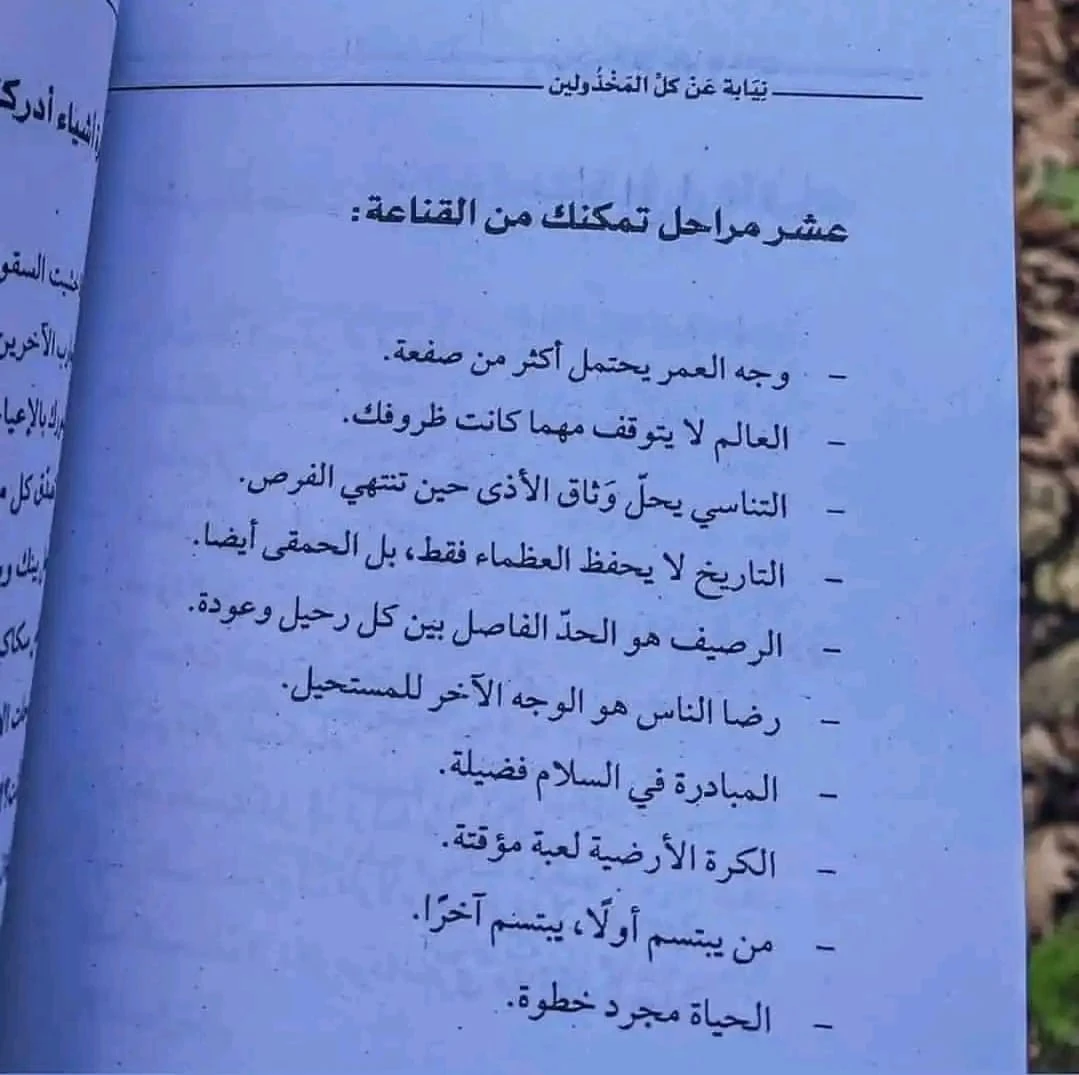 نِيَابة عَنْ كلِّ المَخْذُولين
عشر مراحل تمكنك من القناعة:
- وجه العمر يحتمل أكثر من صفعة.
- العالم لا يتوقف مهما كانت ظروفك.
- التناسي يحلّ وَثاق الأذى حين تنتهي الفرص.
- التاريخ لا يحفظ العظماء فقط، بل الحمقى أيضا.
- الرصيف هو الحدّ الفاصل بين كل رحيل وعودة.
- رضا الناس هو الوجه الآخر للمستحيل.
- المبادرة في السلام فضيلة.
- الكرة الأرضية لعبة مؤقتة.
- من يبتسم أولًا، يبتسم آخرًا.
- الحياة مجرد خطوة.
أشياء
السقو
الآخرين
كل